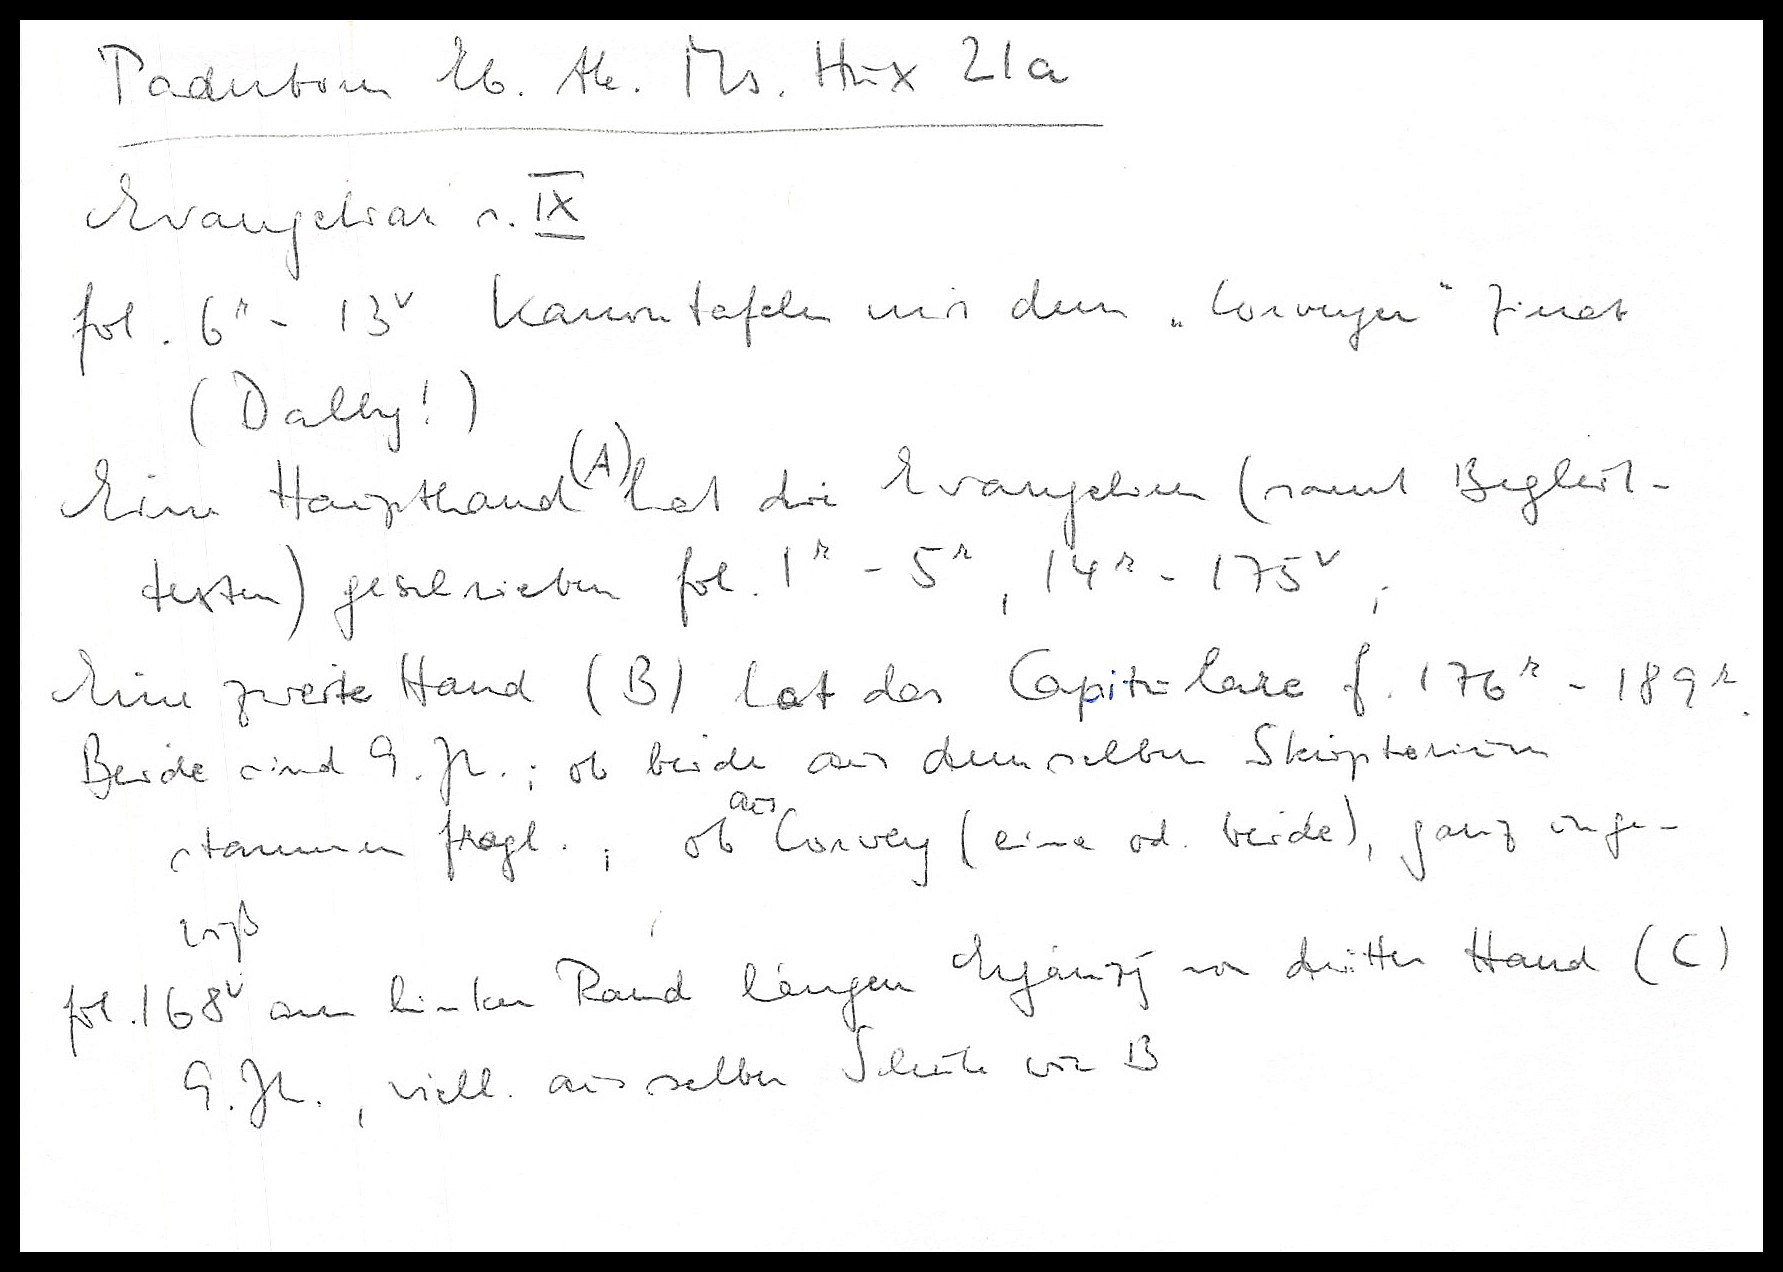 Paderborn Eb. Ak. Ms. Hux 21a
Evangeliar s. IX
fol. 6r - 13v Kanontafeln mit dem „Corveyer“ Zierat
(Dalby!)
Eine Haupthand (A) hat die Evangelien (samt Begleit-
texten) geschrieben fol. 1r - 5r, 14r - 175v;
Eine zweite Hand (B) hat das Capitulare f. 176r - 189r.
Beide sind 9. Jh.; ob beide aus demselben Skriptorium
stammen fragl.; ob aus Corvey (eine od. beide), ganz unge-
wiß
fol. 168v am linken Rand längere Ergänzg von dritter Hand (C)
9. Jh., viell. aus selber Schule wie B